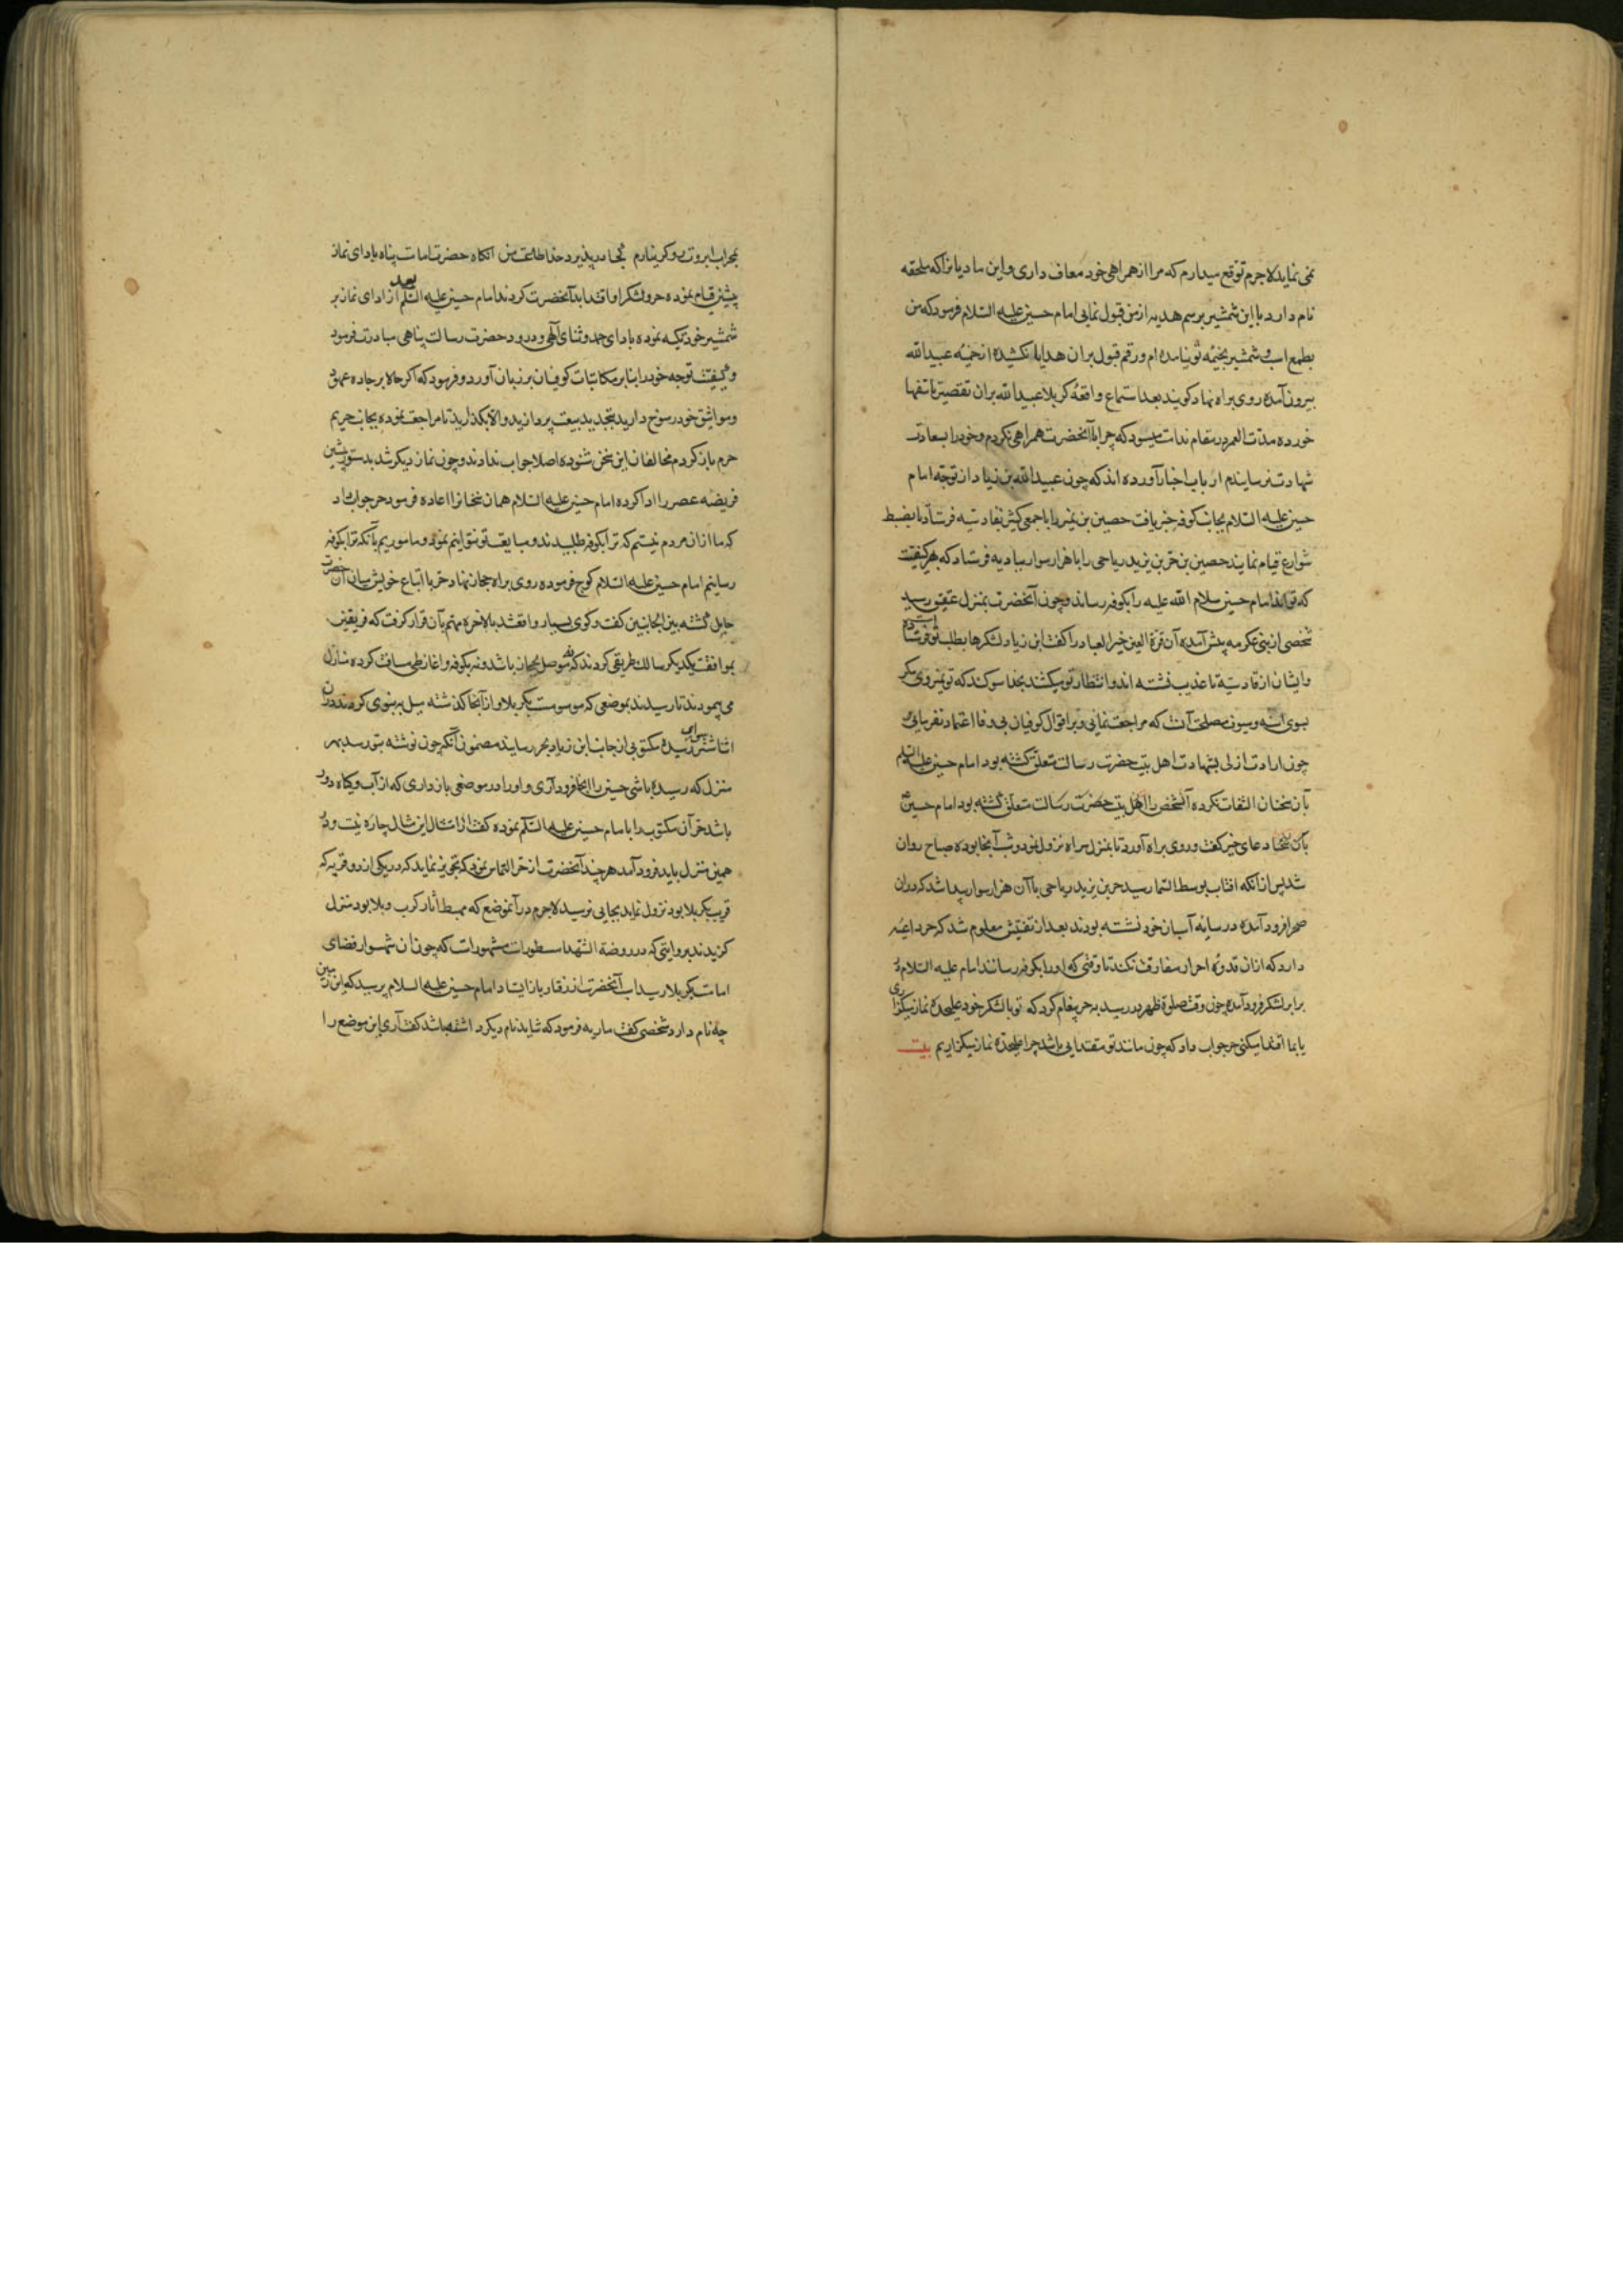 نمی نماید لاجرم توقع میدارم که مرا از همراهی خود معاف داری و این مادیانرا که ملحقه
نام دارد با این شمشیر برسم هدیه از من قبول نمایی امام حسین علیه السلام فرمود که من
بطمع اسب و شمشیر بخیمه تو نیامده ام و رقم قبول بران هدایا نکشیده از خیمه عبیدالله
بیرون آمده روی براه نهاد گویند بعد استماع واقعه کربلا عبیدالله بران تقصیر تاسفها
خورده مدت العمر در مقام ندامت میبود که چرا با آنحضرت همراهی نکردم و خود را بسعادت
شهادت نرسانیدم ارباب اخبار آورده اند که چون عبیدالله بن زیاد از توجه امام
حسین علیه السلام بجانب کوفه خبر یافت حصین بن نمیر را با جمعی کثیر بقادسیه فرستاد تا بضبط
شوارع قیام نمایند حصین بن حر بن یزید ریاحی را با هزار سوار ببادیه فرستاد که بهر کیفیت
که تواند امام حسین سلام الله علیه را بکوفه رساند و چون آنحضرت بمنزل عقیق رسید
شخصی از بنی عکرمه پیش آمده آن قرة العین خیر العباد را گفت ابن زیاد لشکرها بطلب تو فرستاده است
و ایشان از قادسیه تا عذیب نشسته اند و انتظار تو میکشند بخدا سوکند که تو نمیروی مکر
بسوی اسنه و سیوف مصلحت آنست که مراجعت نمایی و بر اقوال کوفیان بی وفا اعتماد نفرمایی
چون ارادت ازلی بشهادت اهل بیت حضرت رسالت متعلق گشته بود امام حسین علیه السلام
بآن سخنان التفات نکرده آنشخص را اهل بیت حضرت رسالت متعلق گشته بود امام حسین
بآن سخنها دعای خیر گفت و روی براه آورد تا بمنزل سراه نزول نمود و شب آنجا بوده صباح روان
شد پس از آنکه افتاب بوسط السما رسید حر بن یزید ریاحی با آن هزار سوار پیدا شد که دران
صحرا فرود آمده در سایه آسبان خود نشسته بودند بعد از تفتیش معلوم شد که حر داعیه
دارد که ازان قدوه احرار مفارقت نکند تا وقتی که اورا بکوفه رساند امام علیه السلام در
برابر لشکر فرود آمده چون وقت صلوة ظهر در رسید به حر پیغام کرد که تو با لشکر خود علیحده نماز میکزاری
یا بما اقتدا میکنی حر جواب داد که چون مانند تو مقتدایی باشد چرا علیحده نماز میکزاریم بیت
بمحراب ابروت رو گر نیارم کجا در پذیرد خدا طاعت من آنکاه حضرت امامت پناه بادای نماز
پیشین قیام نموده حر و لشکر او اقتدا بدآنحضرت کردند امام حسین علیه السلم بعد از ادای نماز بر
شمشیر خود تکیه نموده بادای حمد و ثنای آلهی و درود حضرت رسالت پناهی مبادرت فرمود
و کیفیت توجه خود را بنابر مکاتبات کوفیان بر زبان آورد و فرمود که اکر حالا بر جاده عهود
و مواثیق خود رسوخ دارید بتجدید بیعت پردازید و الا بکذارید تا مراجعت نموده بجانب حریم
حرم باز کردم مخالفان این سخن شنوده اصلا جواب ندادند و چون نماز دیکر شد بدستور پیشین
فریضه عصر را ادا کرده امام حسین علیه السلام همان سخنانرا اعاده فرمود حر جواب داد
که ما ازان مردم نیستیم که ترا بکوفه طلبیدند و مبایعت تو نتوانیم نمود و ماموریم بآنکه ترا بکوفه
رسانیم امام حسین علیه السلام کوچ فرموده روی براه حجاز نهاد حر با اتباع خویش میان آن حضرت
حایل گشته بین الجانبین کفت و کوی بسیار واقع شد بالاخره مهم بآن قرار کرفت که فریقین
بموافقت یکدیکر سالک طریقی کردند که نه موصل بحجاز باشد و نه بکوفه و اغاز طی مسافت کرده منازل
می پیمودند تا رسیدند بموضعی که موسومست بکربلا و از آنجا کذشته میل به نینوی کردند دران
اثنا شتر سواری رسیده مکتوبی از جانب ابن زیاد بحر رسانید مضمون آنکه چون نوشته بتو رسد بهر
منزل که رسیده باشی حسین را انجا فرود آری و اورا در موضعی باز داری که از آب و کیاه دور
باشد حر آن مکتوب را با امام حسین علیه السلم نموده کفت از امتثال این مثال چاره نیست و در
همین منزل باید فرود آمد هر چند آنحضرت از حر التماس نمود که تجویز نماید که در یکی از دو قریه که
قریب بکربلا بود نزول نماید بجایی نرسید لاجرم در آنموضع که مهبط اثار کرب و بلا بود منزل
کزیدند بروایتی که در روضة الشهدا مسطور است مشهور است که چون ان شهسوار فضای
امامت بکربلا رسید اسب آنحضرت از رفتار باز ایستاد امام حسین علیه السلام پرسید که این زمین
چه نام دارد شخصی کفت ماریه فرمود که شاید نام دیکر داشته باشد کفت آری این موضع را